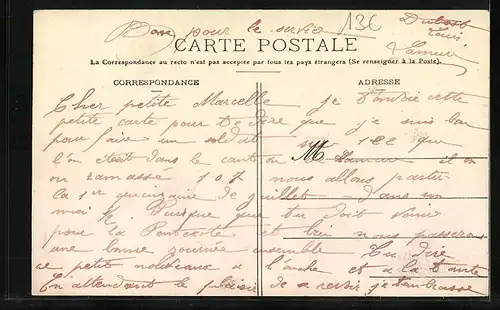 Bon pour le service 136
Dubost
Louis
CARTE POSTALE
La Correspondance au recto n'est pas acceptée par tous les pays étrangers (Se renseigner à la Poste).
CORRESPONDANCE ADRESSE
Cher petite Marcelle je t'envoie cette
petite carte pour te dire que je suis bon
pour faire un soldat sur 122 que
l'on était dans le canton M de il on
on ramassé 107 nous allons partir
la 1re quinzaine de juillet dans un
moi Puisque que tu doit venir
pour la Pentecôte et bien nous passerons
une bonne journée ensemble Tu dire
ce petit nouveaux a l'anche et a la tante
En attendant le plaisir de se revoir je t'embrasse